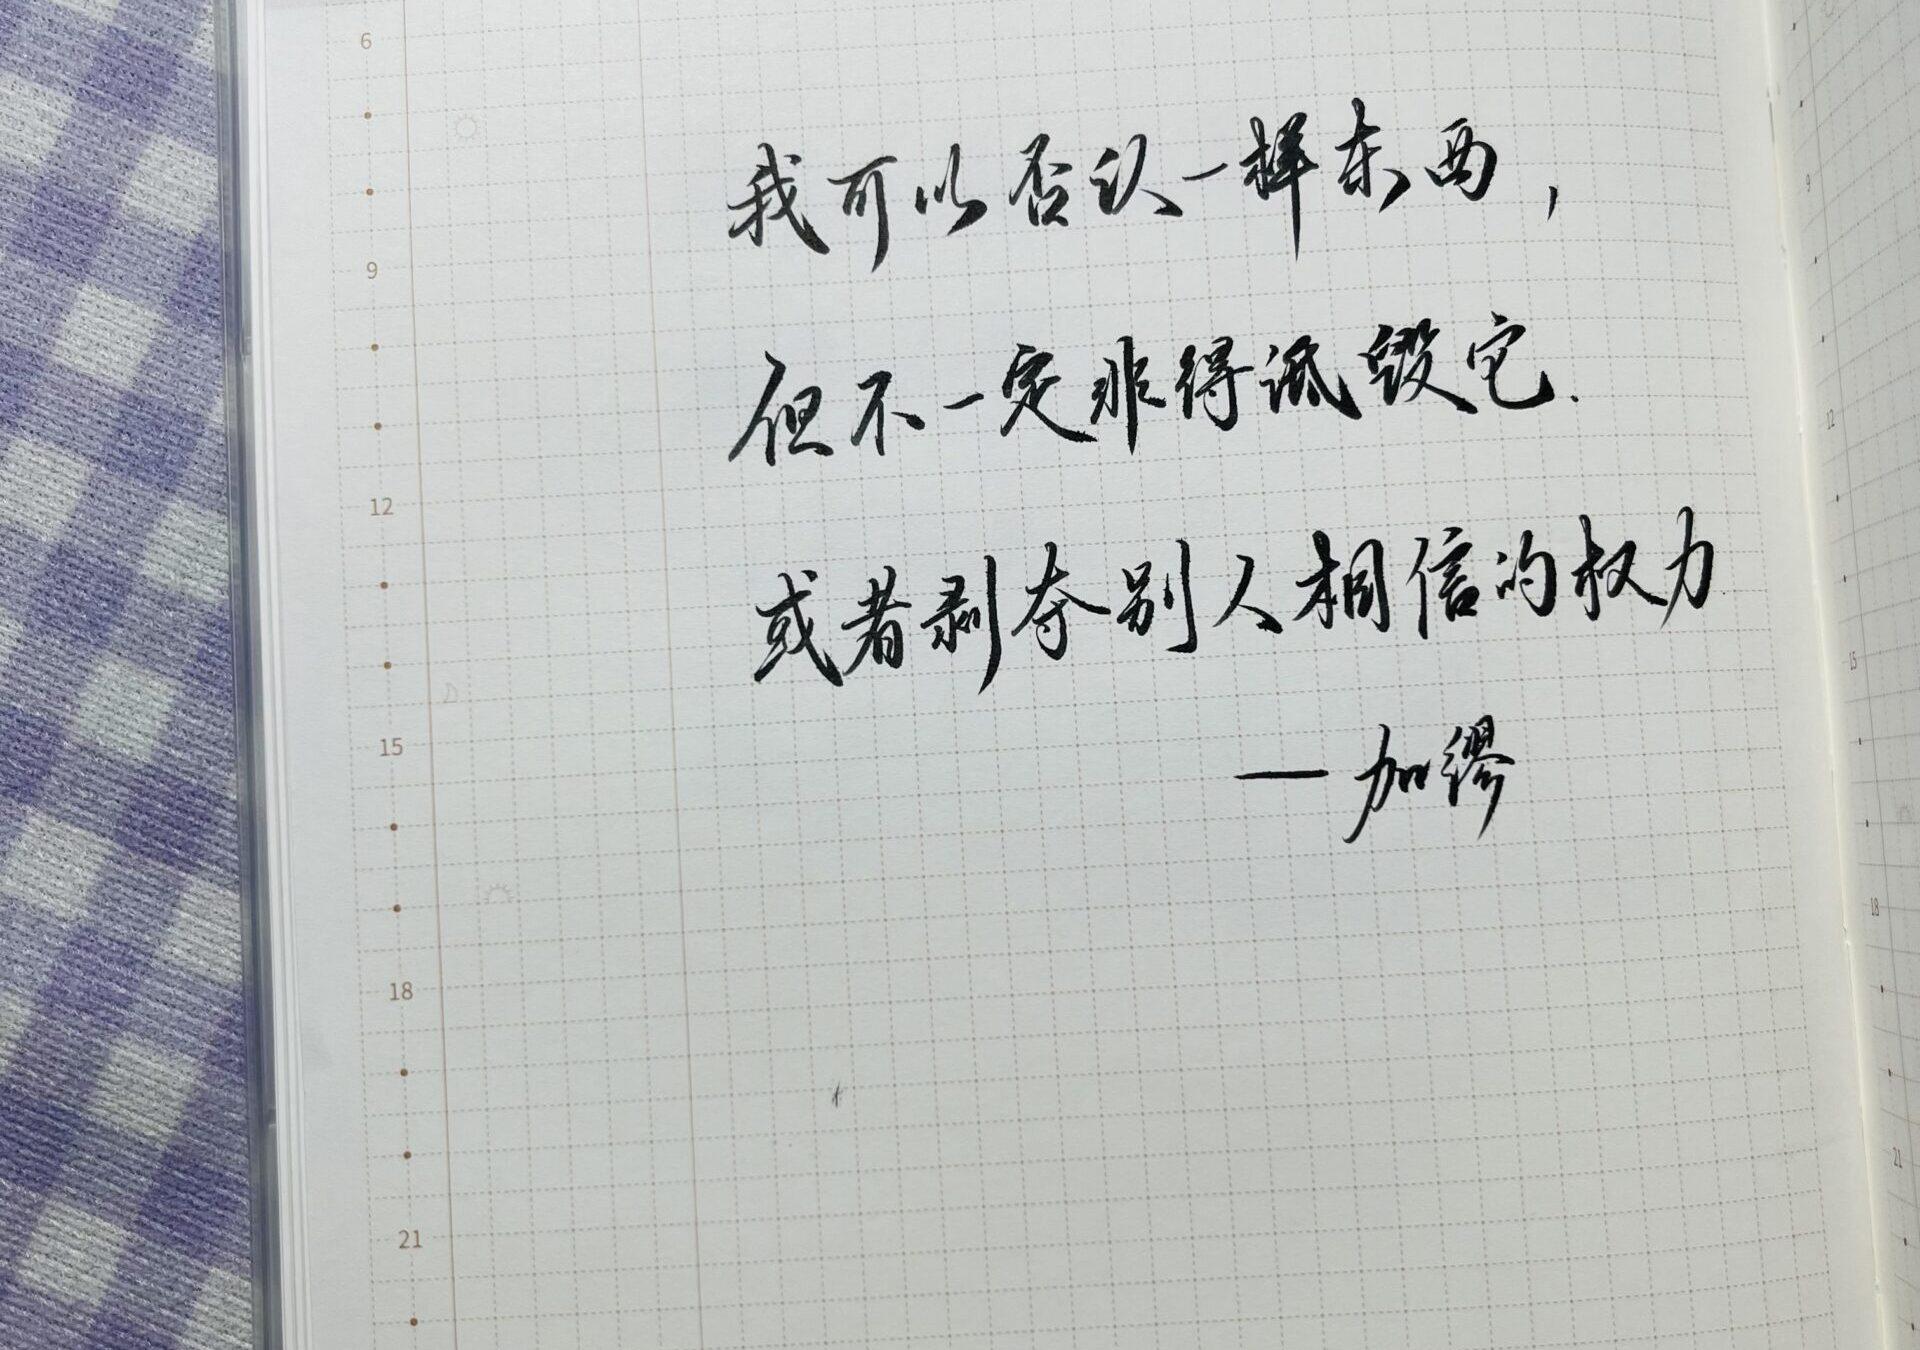 我可以否认一样东西，
但不一定非得诋毁它.
或者剥夺别人相信的权力
—加缪
6
9
12
15
18
21
9
12
15
18
21